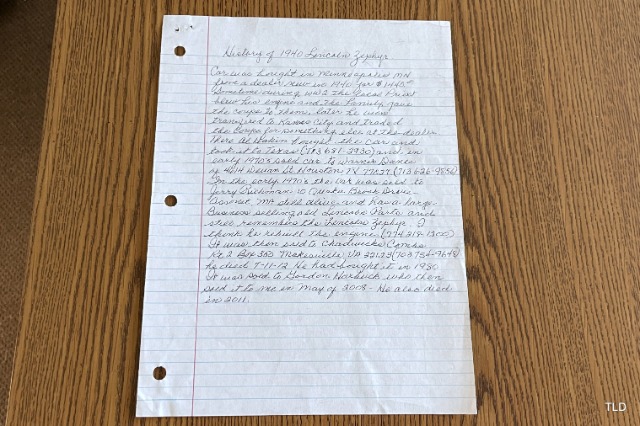 History of 1940 Lincoln Zephyr
Car was bought in Minneapolis MN
from a dealer new in 1940 for $1440
Sometime during WW2 the local Priest
blew his engine and the Family gave
the coupe to them. Later he was
transfered to Kansas City and traded
the Coupe for something else at the dealer
There Al Haskin bought the car and
took it to Texas (713 681-2930) and in
early 1970's sold car to
of 4614 Devon St Houston TV 77027 (713 626-9856)
In the early 1970's the car was sold to
Jerry 10 Brook Drive
MA still alive and has a large
Business selling old Lincoln Parts and
still remembers the Lincoln Zephyr. I
think he rebuilt the engine (774 219-1300)
It was then sold to Chadwick
Rt 2 Box 383 VA 22123 (703 754-7648)
he died 7-11-12 He had bought it in 1980
It was sold to Gordon who then
sold it to me in May of 2008 - He also died
in 2011.
TLD